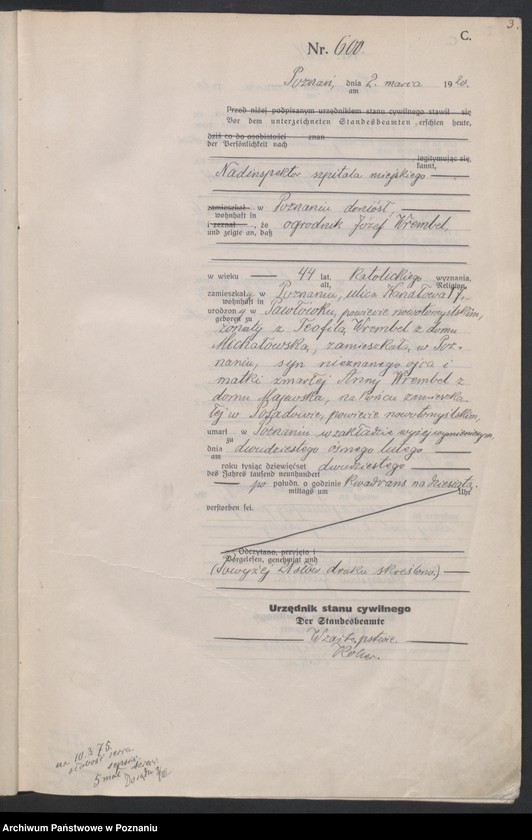 3.
C.
Nr. 600.
Poznań, dnia 2. marca 1920.
am
Przed niżej podpisanym urzędnikiem stanu cywilnego stawił się
Vor dem unterzeichneten Standesbeamten erschien heute,
dziś co do osobistości znan
der Persönlichkeit nach
legitymując się,
kannt,
Nadinspektor szpitala miejskiego
zamieszkał w Poznaniu doniósł,
wohnhaft in
i zeznał , że ogrodnik Józef Wrembel,
und zeigte an, daß
w wieku 44 lat, katolickiego wyznania,
alt, Religion,
zamieszkały w Poznaniu, ulica Kanałowa 17,
wohnhaft in
urodzony w Pawłówku, powiecie nowotomyślkim,
geboren zu
żonaty z Teofilą Wrembel z domu
Michałowska, zamieszkałą w Poz-
naniu, syn nieznanego ojca i
matki zmarłej Anny Wrembel z
domu Majewska, na końcu zamieszka-
łej w Posadowie, powiecie nowotomyślkim,
umarł w Poznaniu w zakładzie wyżej wymienionym,
zu
dnia dwudziestego ósmego lutego
am
roku tysiąc dziewięćset dwudziestego
des Jahres tausend neunhundert
po połudn. o godzinie kwadrans na dziesiątą.
mittags um Uhr
verstorben sei.
Odczytano, przyjęto i
Vorgelesen, genehmigt und
(Powyżej słów druku skreślono.)
Urzędnik stanu cywilnego
Der Standesbeamte
W zastępstwie
na 10.3.75.
Archiwum Państwowe w Poznaniu